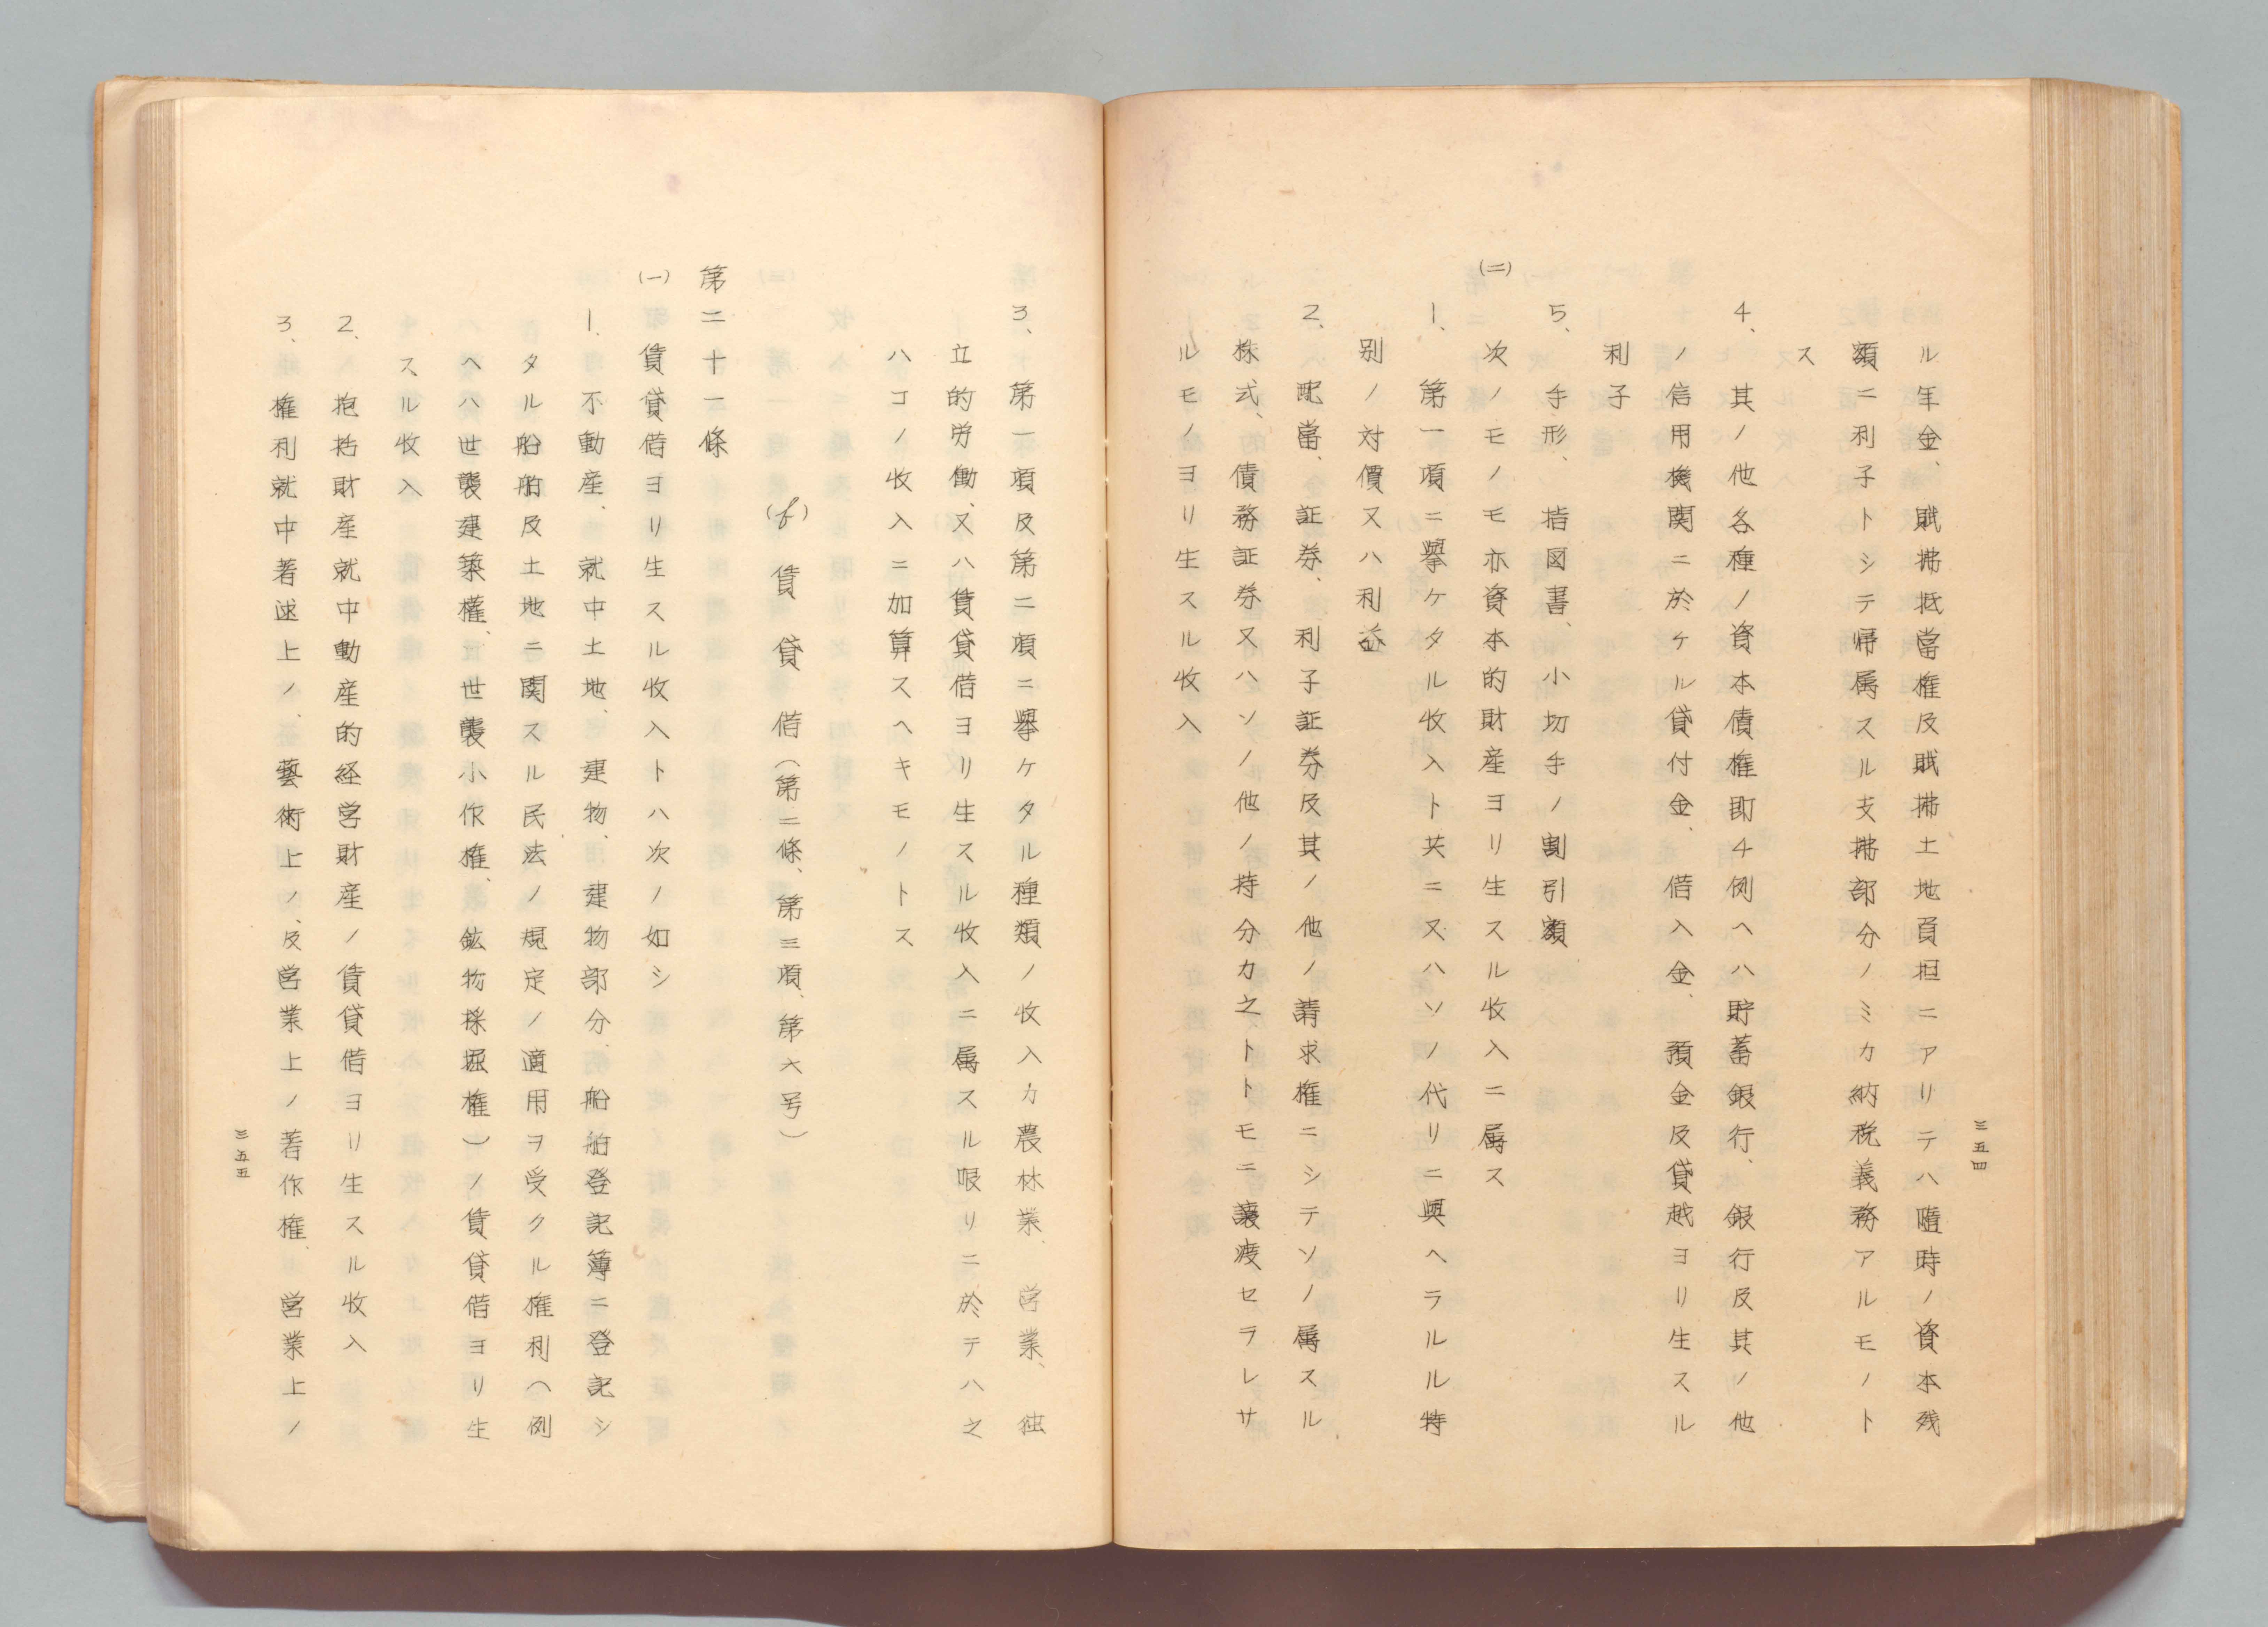 ル年金、賦払抵當権及賦払土地負担ニアリテハ隨時ノ資本残
額ニ利子トシテ帰属スル支払部分ノミカ納税義務アルモノト
ス
4、其ノ他各種ノ資本債権即チ例ヘハ貯蓄銀行、銀行及其ノ他
ノ信用機関ニ於ケル貸付金、借入金、預金及貸越ヨリ生スル
利子
5、手形、指図書、小切手ノ割引額
(二)次ノモノモ亦資本的財産ヨリ生スル收入ニ属ス
1、第一項ニ擧ケタル收入ト共ニ又ハソノ代リニ與ヘラルル特
別ノ対價又ハ利益
2、配當、証券、利子証券及其ノ他ノ請求権ニシテソノ属スル
株式、債務証券又ハソノ他ノ持分カ之トトモニ譲渡セラレサ
ルモノヨリ生スル收入
三五四
3、第一項及第二項ニ擧ケタル種類ノ收入カ農林業、営業、独
立的労働、又ハ賃貸借ヨリ生スル收入ニ属スル限リニ於テハ之
ハコノ收入ニ加算スヘキモノトス
(f)賃貸借(第二條、第三項、第六号)
第二十一條
(一)賃貸借ヨリ生スル收入トハ次ノ如シ
1、不動産、就中土地、建物、建物部分、船舶登記簿ニ登記シ
タル船舶及土地ニ関スル民法ノ規定ノ適用ヲ受クル権利(例
ヘハ世襲建築權、世襲小作権、鉱物採掘権)ノ賃貸借ヨリ生
スル收入
2、抱括財産就中動産的経営財産ノ賃貸借ヨリ生スル收入
3、権利就中著述上ノ、藝術上ノ、及営業上ノ著作権、営業上ノ
三五五